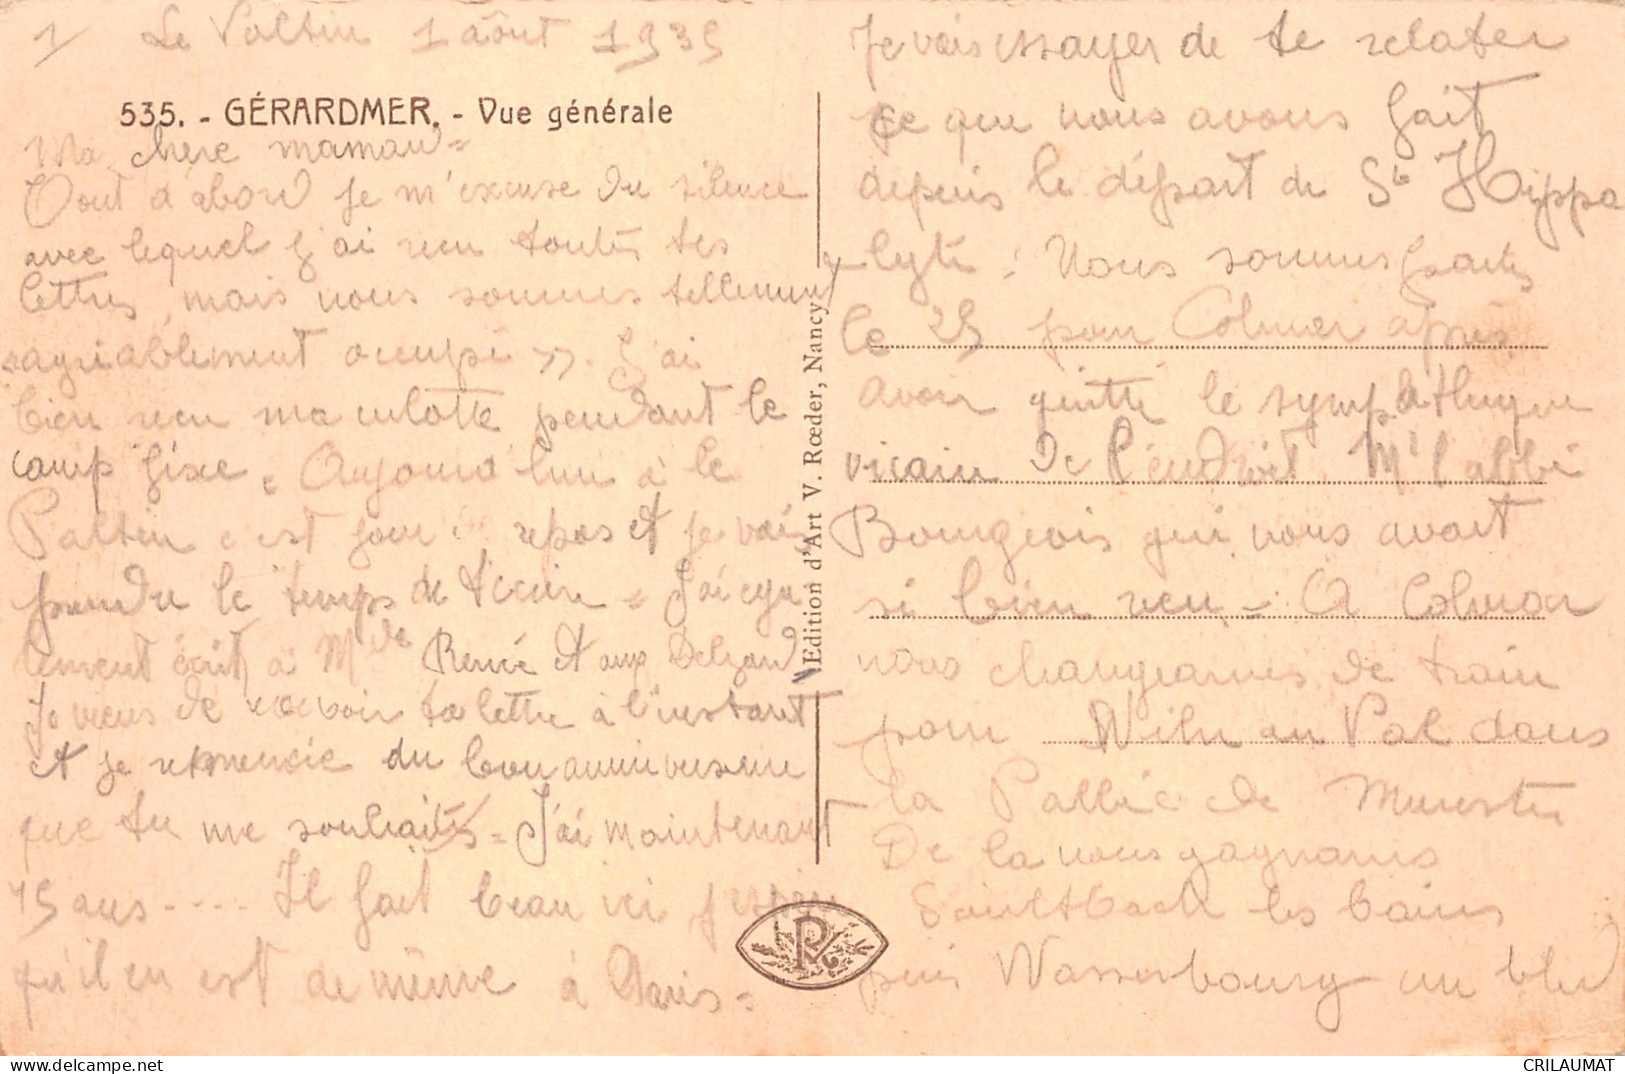 1/ Le Valtin 1 août 1939
535. - GÉRARDMER. - Vue générale
Ma chere maman =
Tout d'abord je m'excuse du silence
avec lequel j'ai reçu toutes tes
lettres, mais nous sommes tellement
agréablement occupé
J'ai
bien reçu ma culotte pendant le
camp fixe. Aujourd'hui à le
Valtin c'est jour repos et je vais
prendre le temps de t'ecrire = J'ai éga
lement écrit à Mlle Renée et aux
Je viens de recevoir ta lettre à l'instant
et je remercie du bon anniversaire
que tu me souhaites = J'ai maintenant
15 ans .... Il fait beau ici j'espère
qu'il en est de même à Paris =
Edition d'Art V. Rœder, Nancy
Je vais essayer de te relater
ce que nous avons fait
depuis le départ de St Hippo
lyte : Nous sommes partis
le 25 pour Colmar après
avoir quitté le sympathique
vicaire de l'endroit Mr l'abbé
Bourgeois qui nous avait
si bien reçu = A Colmar
nous changeames de train
pour Wihr au Val dans
la Vallée de Munster
De la nous gagnames
Soultzbach les bains
puis Wasserbourg un
PV
CRILAUMAT